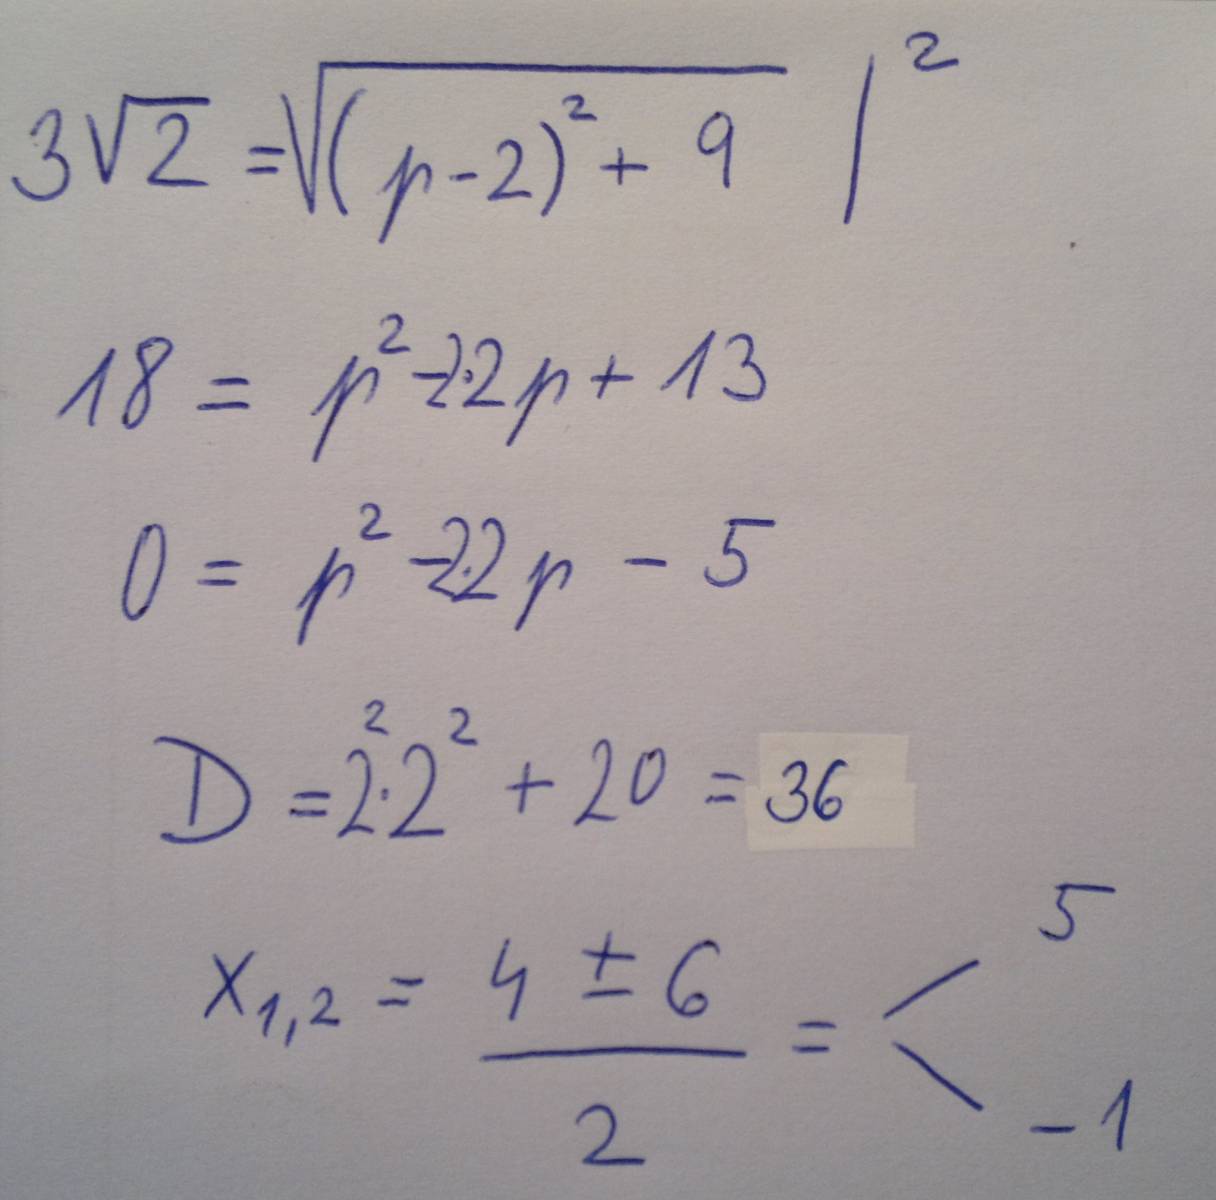 3√2 = √((p-2)² + 9) |²
18 = p² - 2·2p + 13
0 = p² - 2·2p - 5
D = 2²·2² + 20 = 36
x₁,₂ = (4 ± 6)/2 = < 5
-1